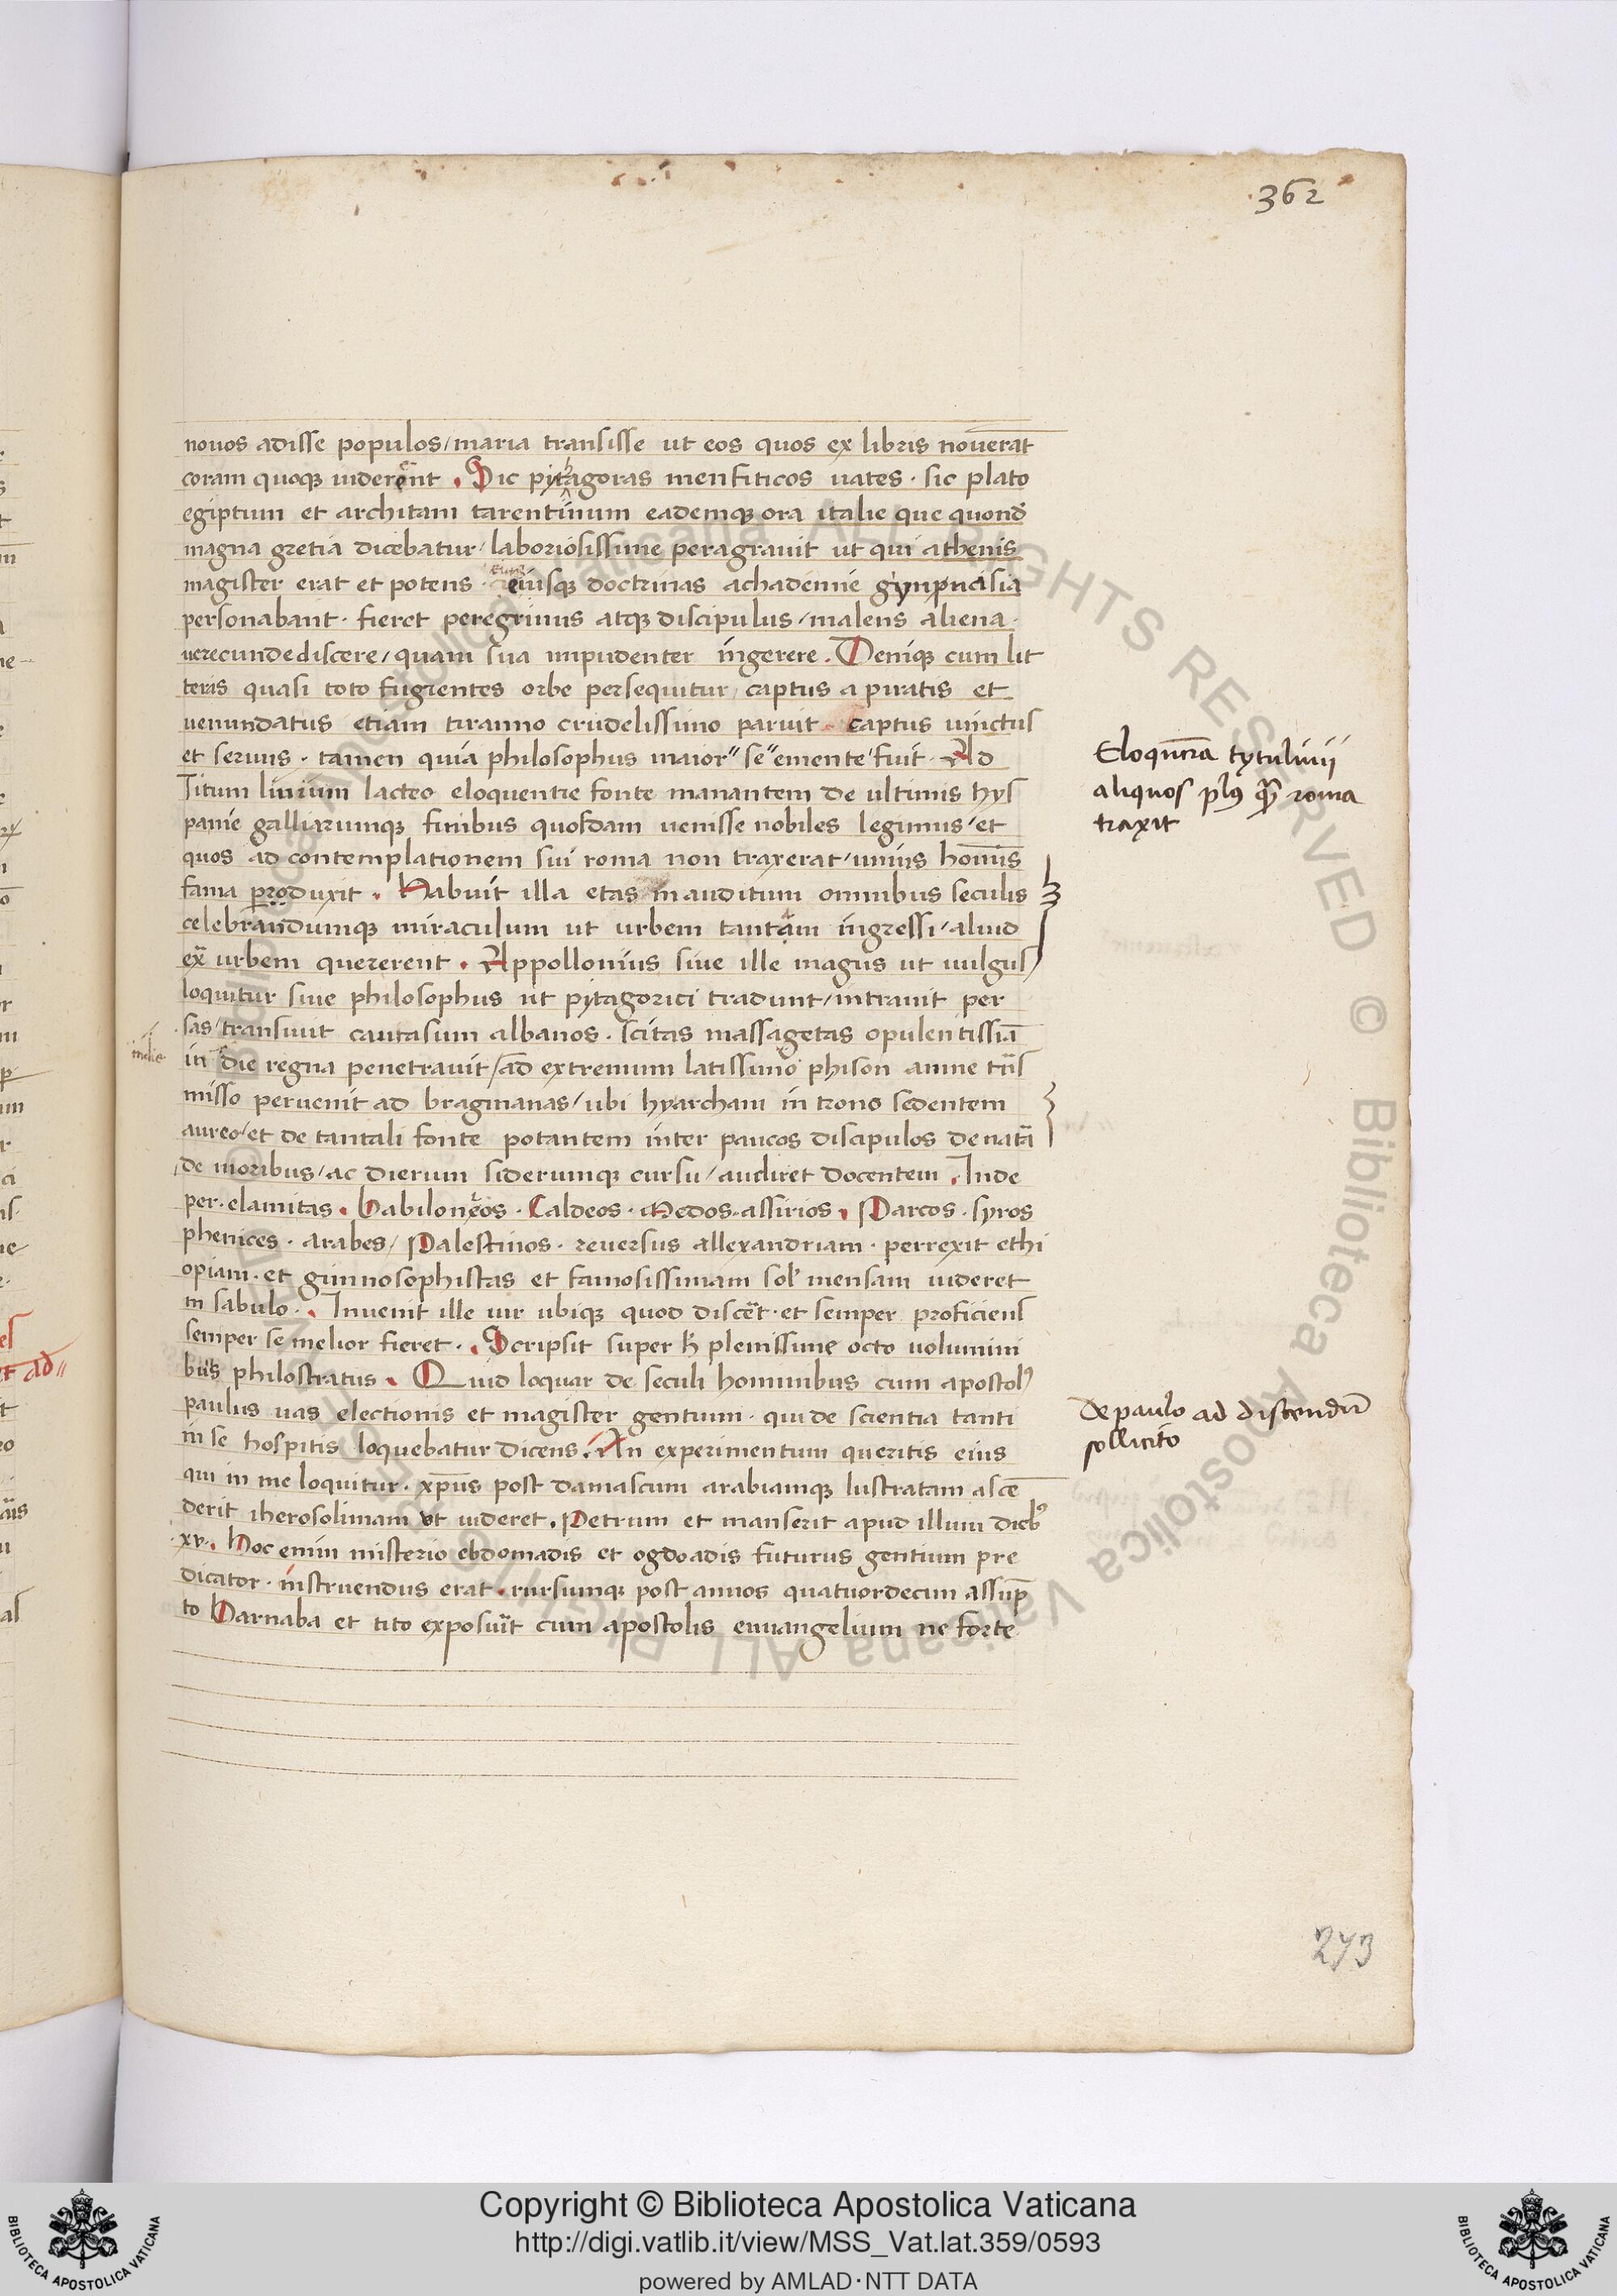 362
nouos adisse populos/maria transisse ut eos quos ex libris nouerāt
coram quoqꝫ uiderent . Sic pytagoras menfiticos uates · sic plato
egiptum et architam tarentinum eademqꝫ ora italie que quond̄
magna gretia dicebatur/laboriosissime peragrauit ut qui athenis
magister erat et potens · eiusqꝫ doctrinas achademie
personabant · fieret peregrinus atqꝫ discipulus/malens aliena ·
uerecunde discere/quam sua impudenter ingerere . Deniqꝫ cum lit
teris quasi toto fugientes orbe persequitur/captus a piratis et
uenundatus etiam tiranno crudelissimo paruit captus uinctus
et seruus · tamen quia philosophus maior" se" emente' fuit · Ad
Titum liuium lacteo eloquentie fonte manantem de ultimis hys
panie galliarumqꝫ finibus quosdam uenisse nobiles legimus/et
quos ad contemplationem sui roma non traxerat/unius homīs
fama produxit . Habuit illa etas inauditum omnibus seculis
celebrandumqꝫ miraculum ut urbem tantam ingressi/aliud
exͣ urbem quererent . Appollonius siue ille magus ut uulgus/
loquitur siue philosophus ut pytagorici tradunt/intrauit per
sas/transiuit caucasum albanos · scitas massagetas opulentissīa
indie
in die regna penetrauit/ad extremum latissimo phison amne trās
misso peruenit ad bragmanas/ubi hyarcham in trono sedentem
aureo/et de tantali fonte potantem inter paucos discipulos de natā
de moribus/ac dierum siderumqꝫ cursu/audiret docentem . Inde
per · elamitas . babiloneos · Caldeos · Medos · assirios . Parcos · syros
phenices · arabes/Palestinos · reuersus allexandriam · perrexit ethi
opiam · et gimnosophistas et famosissimam sol' mensam uideret
in sabulo · . Inuenit ille uir ubiqꝫ quod discēt · et semper proficiens
semper se melior fieret · . Scripsit super h̄ plenissime octo uolumini
bus philostratus . Quid loquar de seculi hominibus cum apostol'
paulus uas electionis et magister gentium · qui de scientia tanti
in se hospitis loquebatur dicens . An experimentum queritis eius
qui in me loquitur · xp̄us post damascum arabiamqꝫ lustratam ascē
derit iherosolimam ut uideret . Petrum et manserit apud illum dieb'
· xv · . Hoc enim misterio ebdomadis et ogdoadis futurus gentium pre
dicator · instruendus erat . rursumqꝫ post annos quatuordecim assūp
to Barnaba et tito exposuit cum apostolis euuangelium ne forte
Eloquēcia tytuliuij
aliquos pl9 qͣ roma
traxit
De paulo ad discendū
sollicito
273
Copyright © Biblioteca Apostolica Vaticana
http://digi.vatlib.it/view/MSS_Vat.lat.359/0593
powered by AMLAD·NTT DATA
BIBLIOTECA APOSTOLICA VATICANA
BIBLIOTECA APOSTOLICA VATICANA